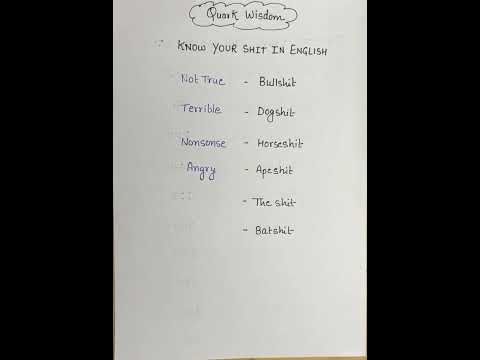 Quark Wisdom
KNOW YOUR SHIT IN ENGLISH
Not True - Bullshit
Terrible - Dogshit
Nonsense - Horseshit
Angry - Apeshit
- The shit
- Batshit